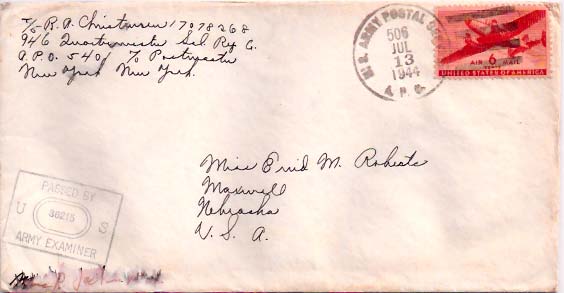 T/5 R. A. Christensen 17078268
946 Quartermaster Sal Rep C.
A.P.O. 540 % Postmaster
New York New York.
U.S. ARMY POSTAL
506
JUL
13
1944
AIR 6 MAIL
CENTS
UNITED STATES OF AMERICA
Miss Enid M. Roberts
Maxwell
Nebraska
U. S. A.
PASSED BY
U 36215 S
ARMY EXAMINER